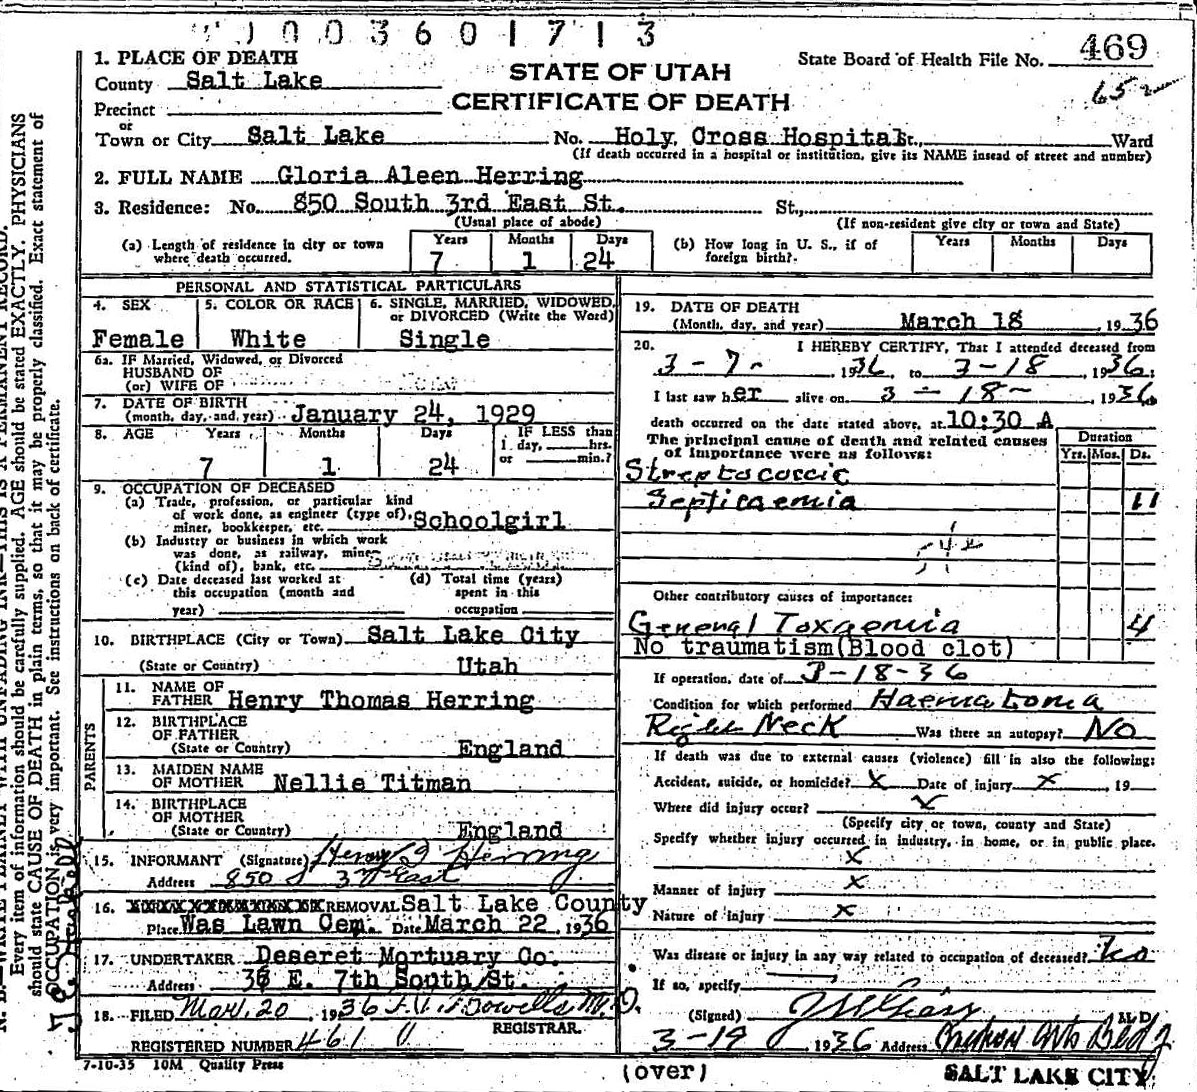 0 0 3 6 0 1 7 1 3
1. PLACE OF DEATH
County Salt Lake
STATE OF UTAH
CERTIFICATE OF DEATH
State Board of Health File No. 469
65
Precinct
or
Town or City Salt Lake No. Holy Cross Hospital St., Ward
(If death occurred in a hospital or institution, give its NAME insead of street and number)
2. FULL NAME Gloria Aleen Herring
3. Residence: No. 850 South 3rd East St. St.,
(Usual place of abode) (If non-resident give city or town and State)
(a) Length of residence in city or town where death occurred. Years 7 Months 1 Days 24
(b) How long in U. S., if of foreign birth? Years Months Days
PERSONAL AND STATISTICAL PARTICULARS
4. SEX Female
5. COLOR OR RACE White
6. SINGLE, MARRIED, WIDOWED, or DIVORCED (Write the Word) Single
6a. IF Married, Widowed, or Divorced
HUSBAND OF
(or) WIFE OF
7. DATE OF BIRTH
(month, day, and year) January 24, 1929
8. AGE Years Months Days IF LESS than
1 day, hrs.
or min.?
7 1 24
9. OCCUPATION OF DECEASED
(a) Trade, profession, or particular kind
of work done, as engineer (type of),
miner, bookkeeper, etc. Schoolgirl
(b) Industry or business in which work
was done, as railway, mine
(kind of), bank, etc.
(c) Date deceased last worked at
this occupation (month and
year)
(d) Total time (years)
spent in this
occupation
10. BIRTHPLACE (City or Town) Salt Lake City
(State or Country) Utah
PARENTS
11. NAME OF
FATHER Henry Thomas Herring
12. BIRTHPLACE
OF FATHER
(State or Country) England
13. MAIDEN NAME
OF MOTHER Nellie Titman
14. BIRTHPLACE
OF MOTHER
(State or Country) England
15. INFORMANT (Signature) Henry T Herring
Address 850 S 3rd East
16. REMOVAL Salt Lake County
Place Was Lawn Cem. Date March 22, 1936
17. UNDERTAKER Deseret Mortuary Co.
Address 36 E. 7th South St.
18. FILED Mar. 20, 1936 M.D.
REGISTRAR.
REGISTERED NUMBER 461
7-10-35 10M Quality Press
19. DATE OF DEATH
(Month, day, and year) March 18 1936
20. I HEREBY CERTIFY, That I attended deceased from
3-7- 1936, to 3-18, 1936,
I last saw her alive on 3-18- 1936
death occurred on the date stated above, at 10:30 A
The principal cause of death and related causes
of importance were as follows:
Duration
Yrs. Mos. Ds.
Streptococcic
Septicaemia 11
Other contributory causes of importance:
General Toxaemia 4
No traumatism(Blood clot)
If operation, date of 3-18-36
Condition for which performed Haematoma
Right Neck Was there an autopsy? No
If death was due to external causes (violence) fill in also the following:
Accident, suicide, or homicide? X Date of injury X, 19
Where did injury occur? X
(Specify city or town, county and State)
Specify whether injury occurred in industry, in home, or in public place.
X
Manner of injury X
Nature of injury X
Was disease or injury in any way related to occupation of deceased? No
If so, specify
(Signed) M.D.
3-19 1936 Address Bldg
SALT LAKE CITY.
(over)
N. B.—WRITE PLAINLY WITH UNFADING INK—THIS IS A PERMANENT RECORD.
Every item of information should be carefully supplied. AGE should be stated EXACTLY. PHYSICIANS
should state CAUSE OF DEATH in plain terms, so that it may be properly classified. Exact statement of
OCCUPATION is very important. See instructions on back of certificate.